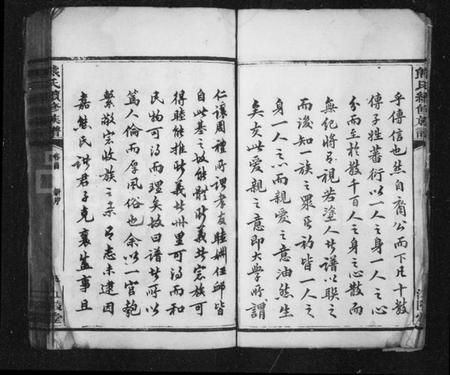 乎傳信也然自
公而下凡十數
傳子姓蕃衍以一人之身一人之心
分而至於數千百人之身心散而
無紀將有視若塗人者譜以聯之
而後知一族之眾皆一人之
身一人之心而親愛之意油然生
矣女此愛親之意即大學所謂
仁讓周禮所謂孝友睦婣任卹皆
自此基之故能
義者宗族可
得睦能推
義者州里可得而和
民物可得而理矣故曰譜者所以
篤人倫而厚風俗也余以一官匏
繫敬宗收族之余有志未逮因
嘉熊氏諸君子克襄盛事且
熊氏續修族譜